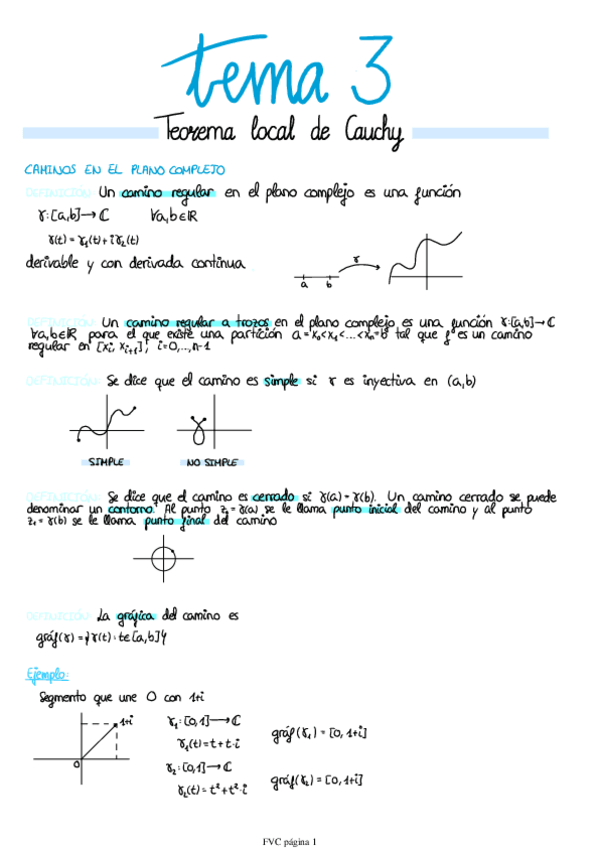 tema 3
Teorema local de Cauchy
CAMINOS EN EL PLANO COMPLEJO
DEFINICIÓN: Un camino regular en el plano complejo es una función
γ:[a,b]→ℂ ∀a,b∈ℝ
γ(t) = γ₁(t)+iγ₂(t)
derivable y con derivada continua.
a b γ
DEFINICIÓN: Un camino regular a trozos en el plano complejo es una función γ:[a,b]→ℂ
∀a,b∈ℝ para el que existe una partición a = x₀<x₁<...<xₙ=b tal que f es un camino
regular en [xᵢ, xᵢ₊₁], i=0,...,n-1
DEFINICIÓN: Se dice que el camino es simple si γ es inyectiva en (a,b)
SIMPLE NO SIMPLE
DEFINICIÓN: Se dice que el camino es cerrado si γ(a) = γ(b). Un camino cerrado se puede
denominar un contorno. Al punto z₁ = γ(a) se le llama punto inicial del camino y al punto
z₁ = γ(b) se le llama punto final del camino
DEFINICIÓN: La gráfica del camino es
gráf(γ) = {γ(t) : t∈[a,b]}
Ejemplo:
Segmento que une 0 con 1+i
1+i
0
γ₁:[0,1]→ℂ
γ₁(t)=t+t·i
gráf(γ₁) = [0, 1+i]
γ₂:[0,1]→ℂ
γ₂(t) = t²+t²·i
gráf(γ₂) = [0, 1+i]
FVC página 1